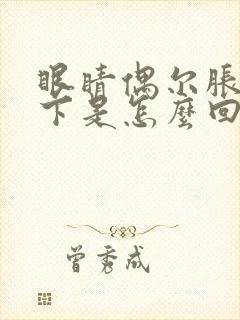 眼睛偶尔胀
下是怎麼回
曾秀成